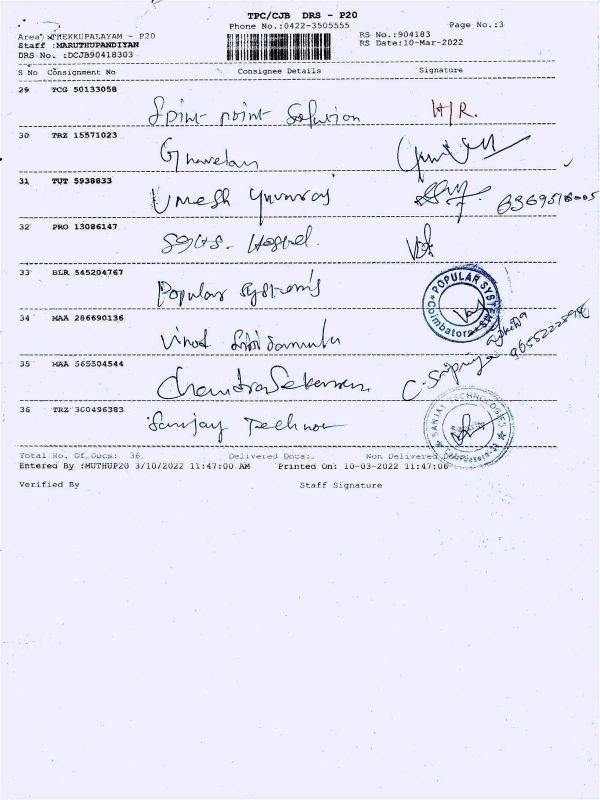 TPC/CJB DRS - P20
Phone No.:0422-3505555
Page No.:3
Area : MEKKUPALAYAM - P20
RS No.:904183
Staff :MARUTHUPANDIYAN
RS Date:10-Mar-2022
DRS No. :DCJB90418303
S No Consignment No Consignee Details Signature
29 TCG 50133058
point Solution H/R.
30 TRZ 15571023
31 TUT 5938833
Umesh Yuvaraj
32 PRO 13086147
Hostel.
33 BLR 545204767
Popular Systems
POPULAR SYSTEMS
*Coimbatore*
34 MAA 286690136
Vinod
35 MAA 565504544
Chandra Sekaran C. Sripriya
36 TRZ 300496383
Sanjay Techno
SANJAY TECHNOLOGIES
Total No. Of Docs: 36 Delivered Docs: Non Delivered Docs:
Entered By :MUTHUP20 3/10/2022 11:47:00 AM Printed On: 10-03-2022 11:47:06
Verified By Staff Signature